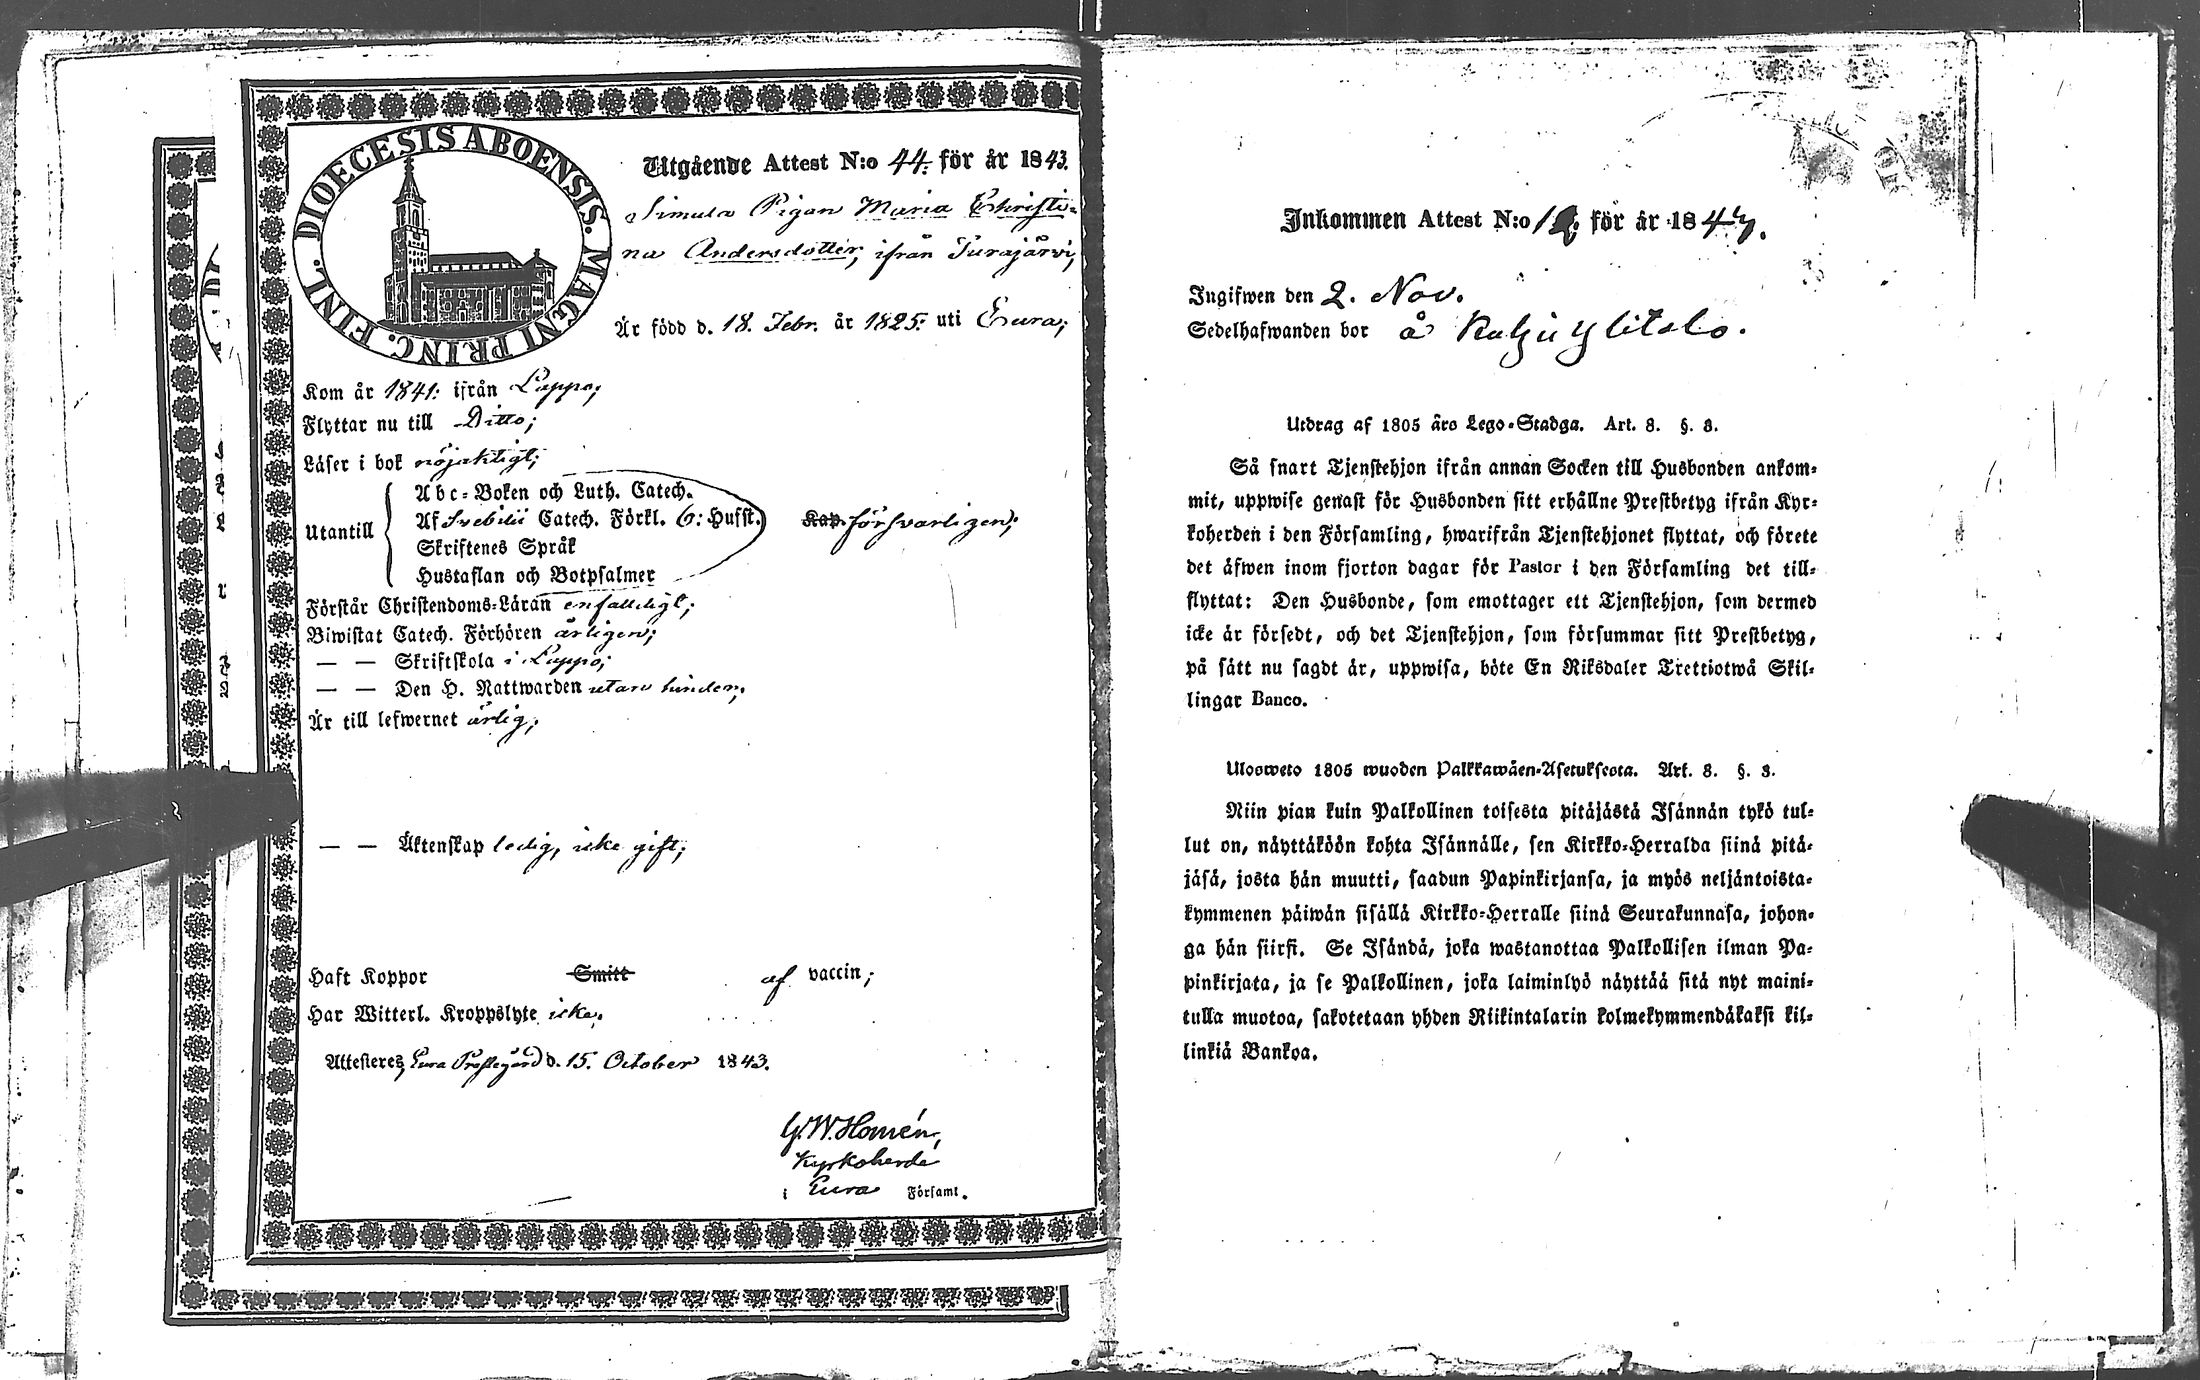 DIOECESIS ABOENSIS. MAGNI PRINC. FINL.
Utgående Attest N:o 44. för år 1843.
Simula Pigan Maria Christi-
na Andersdotter, ifrån Turajärvi,
Är född d. 18. Febr. år 1825: uti Eura;
Kom år 1841: ifrån Lappo;
Flyttar nu till Ditto;
Läser i bok nöjaktigt;
Utantill
Abc-Boken och Luth. Catech.
Af Svebilii Catech. Förkl. 6: Hufst.
Skriftenes Språk
Hustaflan och Botpsalmer
Kap. försvarligen;
Förstår Christendoms-Läran enfaldigt;
Biwistat Catech. Förhören årligen;
— — Skriftskola i Lappo;
— — Den H. Nattwarden utan hinder;
Är till lefwernet ärlig;
— — Äktenskap ledig, icke gift;
Haft Koppor Smitt af vaccin;
Har Witterl. Kroppslyte icke.
Attesteres, Eura Prostegård d. 15. October 1843.
G. W. Homén,
Kyrkoherde
i Eura Församl.
Inkommen Attest N:o för år 184
Ingifwen den 2. Nov.
Sedelhafwanden bor å
Utdrag af 1805 års Lego-Stadga. Art. 8. §. 3.
Så snart Tjenstehjon ifrån annan Socken till Husbonden ankom-
mit, uppwise genast för Husbonden sitt erhållne Prestbetyg ifrån Kyr-
koherden i den Församling, hwarifrån Tjenstehjonet flyttat, och förete
det äfwen inom fjorton dagar för Pastor i den Församling det till-
flyttat: Den Husbonde, som emottager ett Tjenstehjon, som dermed
icke är försedt, och det Tjenstehjon, som försummar sitt Prestbetyg,
på sätt nu sagdt är, uppwisa, böte En Riksdaler Trettiotwå Skil-
lingar Banco.
Ulosweto 1805 wuoden Palkkawäen-Asetuksesta. Art. 8. §. 3.
Niin pian kuin Palkollinen toisesta pitäjästä Isännän tykö tul-
lut on, näyttäköön kohta Isännälle, sen Kirkko-Herralda siinä pitä-
jäsä, josta hän muutti, saadun Papinkirjansa, ja myös neljäntoista-
kymmenen päiwän sisällä Kirkko-Herralle siinä Seurakunnasa, johon-
ga hän siirsi. Se Isändä, joka wastanottaa Palkollisen ilman Pa-
pinkirjata, ja se Palkollinen, joka laiminlyö näyttää sitä nyt maini-
tulla muotoa, sakotetaan yhden Riikintalarin kolmekymmendäkaksi kil-
linkiä Bankoa.